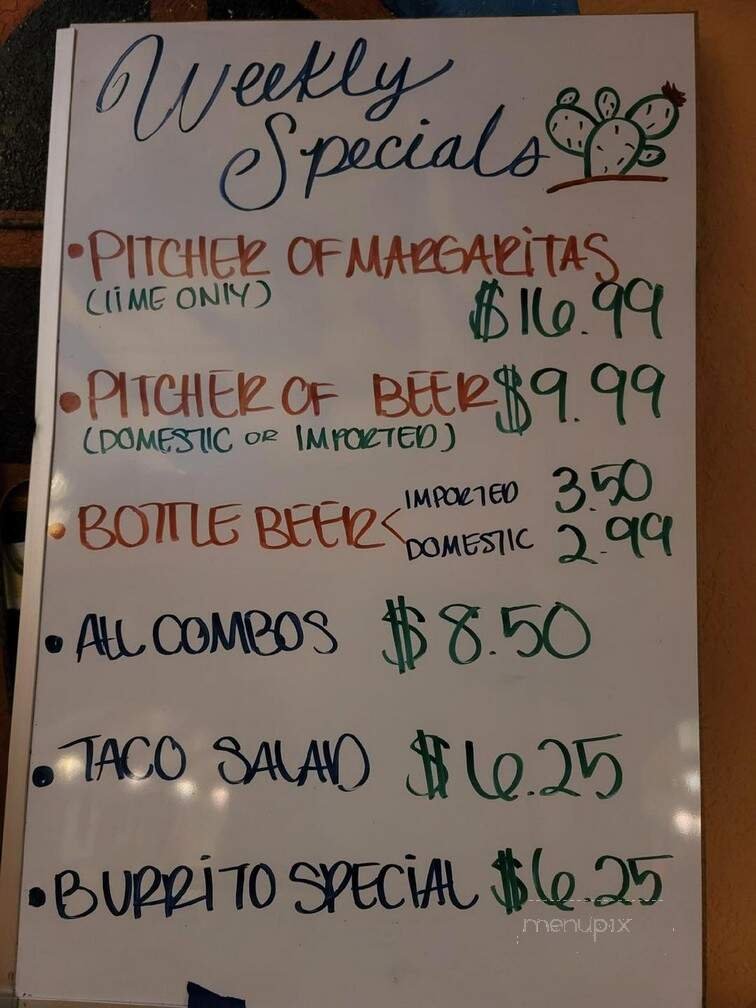 Weekly
Specials
• PITCHER OF MARGARiTAS
(liME ONlY)
$16.99
• PITCHER OF BEER $9.99
(DOMESTIC OR IMPORTED)
• BOTTLE BEER < IMPORTED 3.50
DOMESTIC 2.99
• All COMBOS $8.50
• TACO SALAD $6.25
• BURRiTO SPECiAL $6.25
menupix